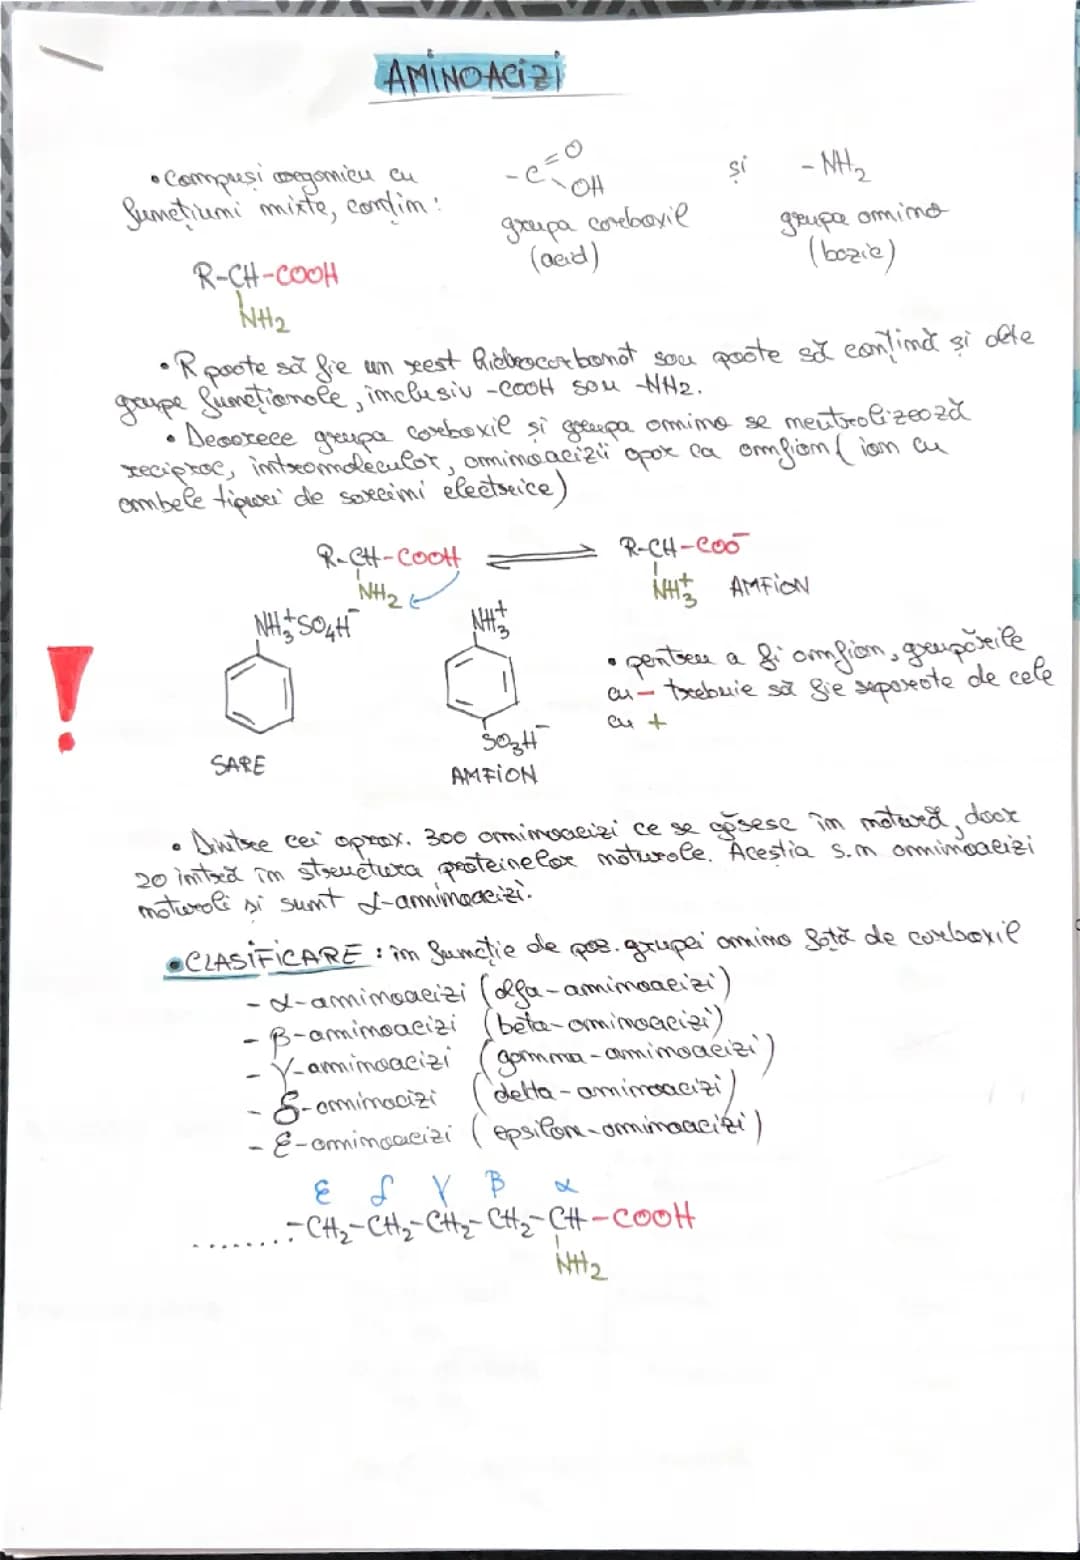 AMINOACIZI
• Compuși organici cu
funcțiuni mixte, conțin:
-C=O
OH
și
-NH2
grupa carboxil
(acid)
grupa amino
(bazic)
R-CH-COOH
NH2
• R poate să fie un rest hidrocarbonat sau poate să conțină și alte
grupe funcționale, inclusiv -COOH sau -NH2.
• Deoarece grupa carboxil și grupa amino se neutralizează
reciproc, intramolecular, aminoacizii apar ca amfion (ion cu
ambele tipuri de sarcini electrice)
R-CH-COOH ⇌ R-CH-COO⁻
NH2 NH3⁺ AMFION
NH3⁺SO4H⁻ NH3⁺
• pentru a fi amfion, grupările
cu - trebuie să fie separate de cele
cu +
SO3H⁻
SARE
AMFION
• Dintre cei aprox. 300 aminoacizi ce se găsesc în natură, doar
20 intră în structura proteinelor naturale. Aceștia s.n aminoacizi
naturali și sunt α-aminoacizi.
• CLASIFICARE: în funcție de poz. grupei amino față de carboxil
- α-aminoacizi (alfa-aminoacizi)
- β-aminoacizi (beta-aminoacizi)
- γ-aminoacizi (gamma-aminoacizi)
- δ-aminoacizi (delta-aminoacizi)
- ε-aminoacizi (epsilon-aminoacizi)
ε δ γ β α
........-CH2-CH2-CH2-CH2-CH-COOH
NH2